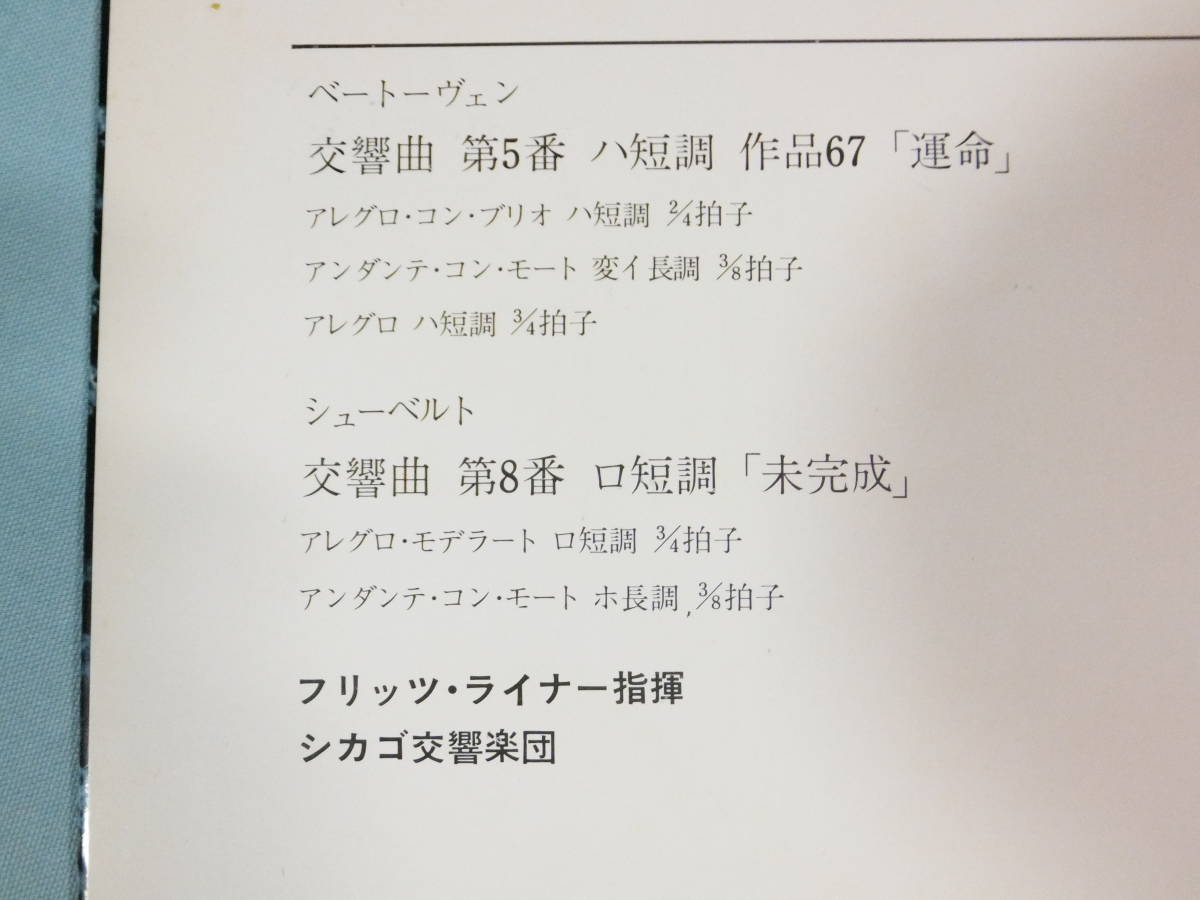 ベートーヴェン
交響曲 第5番 ハ短調 作品67「運命」
アレグロ・コン・ブリオ ハ短調 2/4拍子
アンダンテ・コン・モート 変イ長調 3/8拍子
アレグロ ハ短調 3/4拍子
シューベルト
交響曲 第8番 ロ短調「未完成」
アレグロ・モデラート ロ短調 3/4拍子
アンダンテ・コン・モート ホ長調 3/8拍子
フリッツ・ライナー指揮
シカゴ交響楽団